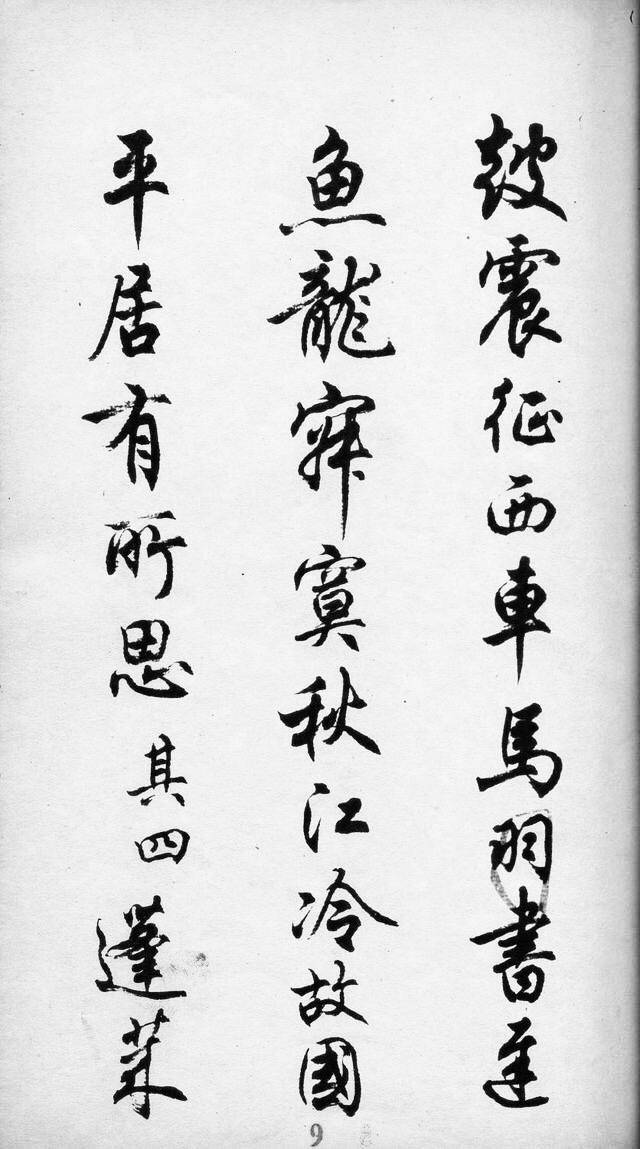 皷震征西車馬羽書遲
魚龍寂寞秋江冷故國
平居有所思 其四 蓬萊
9